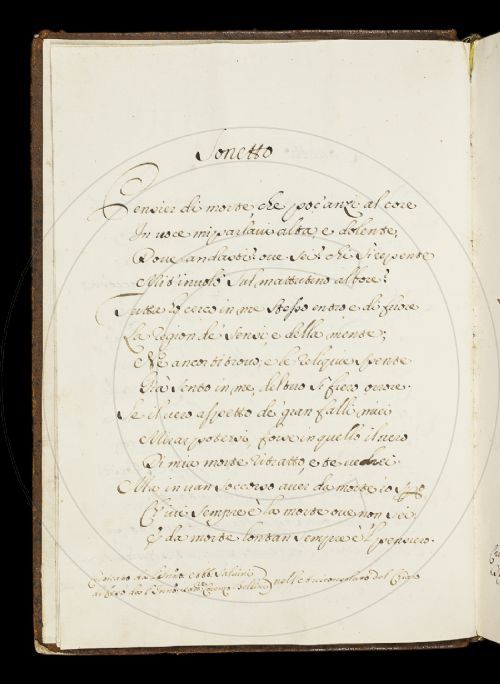 Sonetto
Pensier di morte, che poc'anzi al core
In voce mi parlavi alta, e dolente,
Dove andaste? ove sei? chi sì repente
Mi t'involò sul mattutino albore?
Tutta io cerco in me stesso entro e di fuore
La region de' sensi, e della mente;
Nè ancor ti trovo, e le reliquie spente
Già sento in me, del tuo sì fiero orrore.
Se il vero aspetto de' gran falli miei
Mirar potessi, forse in quello il vero
Di mia morte ritratto, e te vedrei.
Ma in van soccorso aver da morte io spero
Ch' ivi sempre è la morte ove non sei
E da morte lontan sempre è 'l pensiero.
nelle del